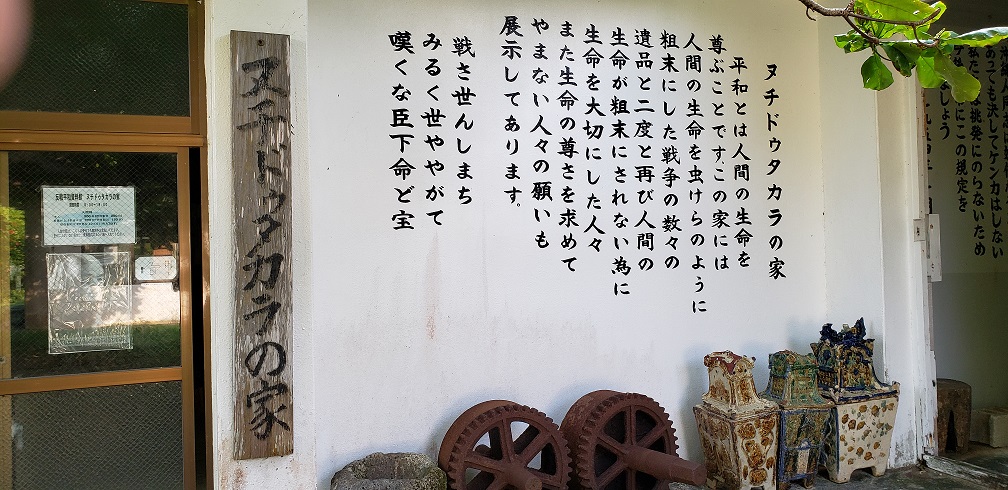 ヌチドゥタカラの家
平和とは人間の生命を
尊ぶことです。この家には
人間の生命を虫けらのように
粗末にした戦争の数々の
遺品と二度と再び人間の
生命が粗末にされない為に
生命を大切にした人々
また生命の尊さを求めて
やまない人々の願いも
展示してあります。
戦さ世んしまち
みるく世ややがて
嘆くな臣下命ど宝
ヌチドゥタカラの家
反戦平和資料館 ヌチドゥタカラの家
あっても決してケンカはしない
挑発にのらないため
にこの規定を
しょう